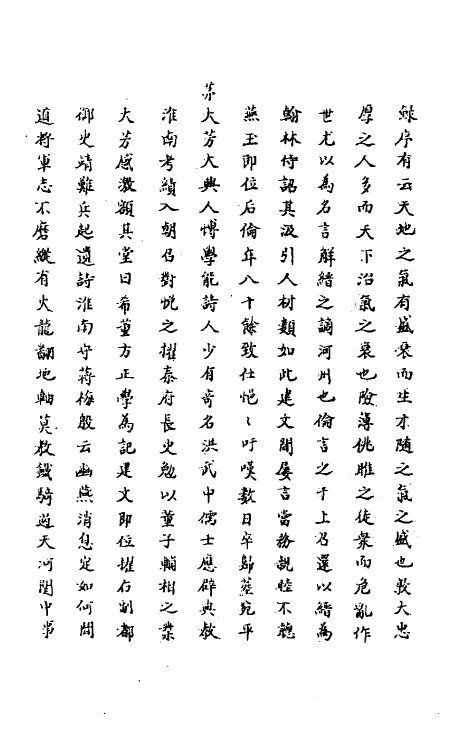 錄序有云天地之氣有盛衰而生才隨之氣之盛也敦大忠
厚之人多而天下治氣之衰也險薄佻脽之徒衆而危亂作
世尤以為名言解縉之謫河州也倫言之于上召還以縉為
翰林侍詔其汲引人材類如此建文間屢言當務親睦不聽
燕王即位后倫年八十餘致仕悒〻吁嘆數日卒歸葬宛平
茅大芳大興人博學能詩人少有奇名洪武中儒士應辟典教
淮南考績入朝召對悅之擢秦府長史勉以董子輔相之業
大芳感激額其堂曰希董方正學為記建文即位擢右副都
御史靖難兵起遺詩淮南守蔣梅殷云幽燕消息定如何聞
道將軍志不磨縱有火龍翻地軸莫教鐵騎過天河閫中事